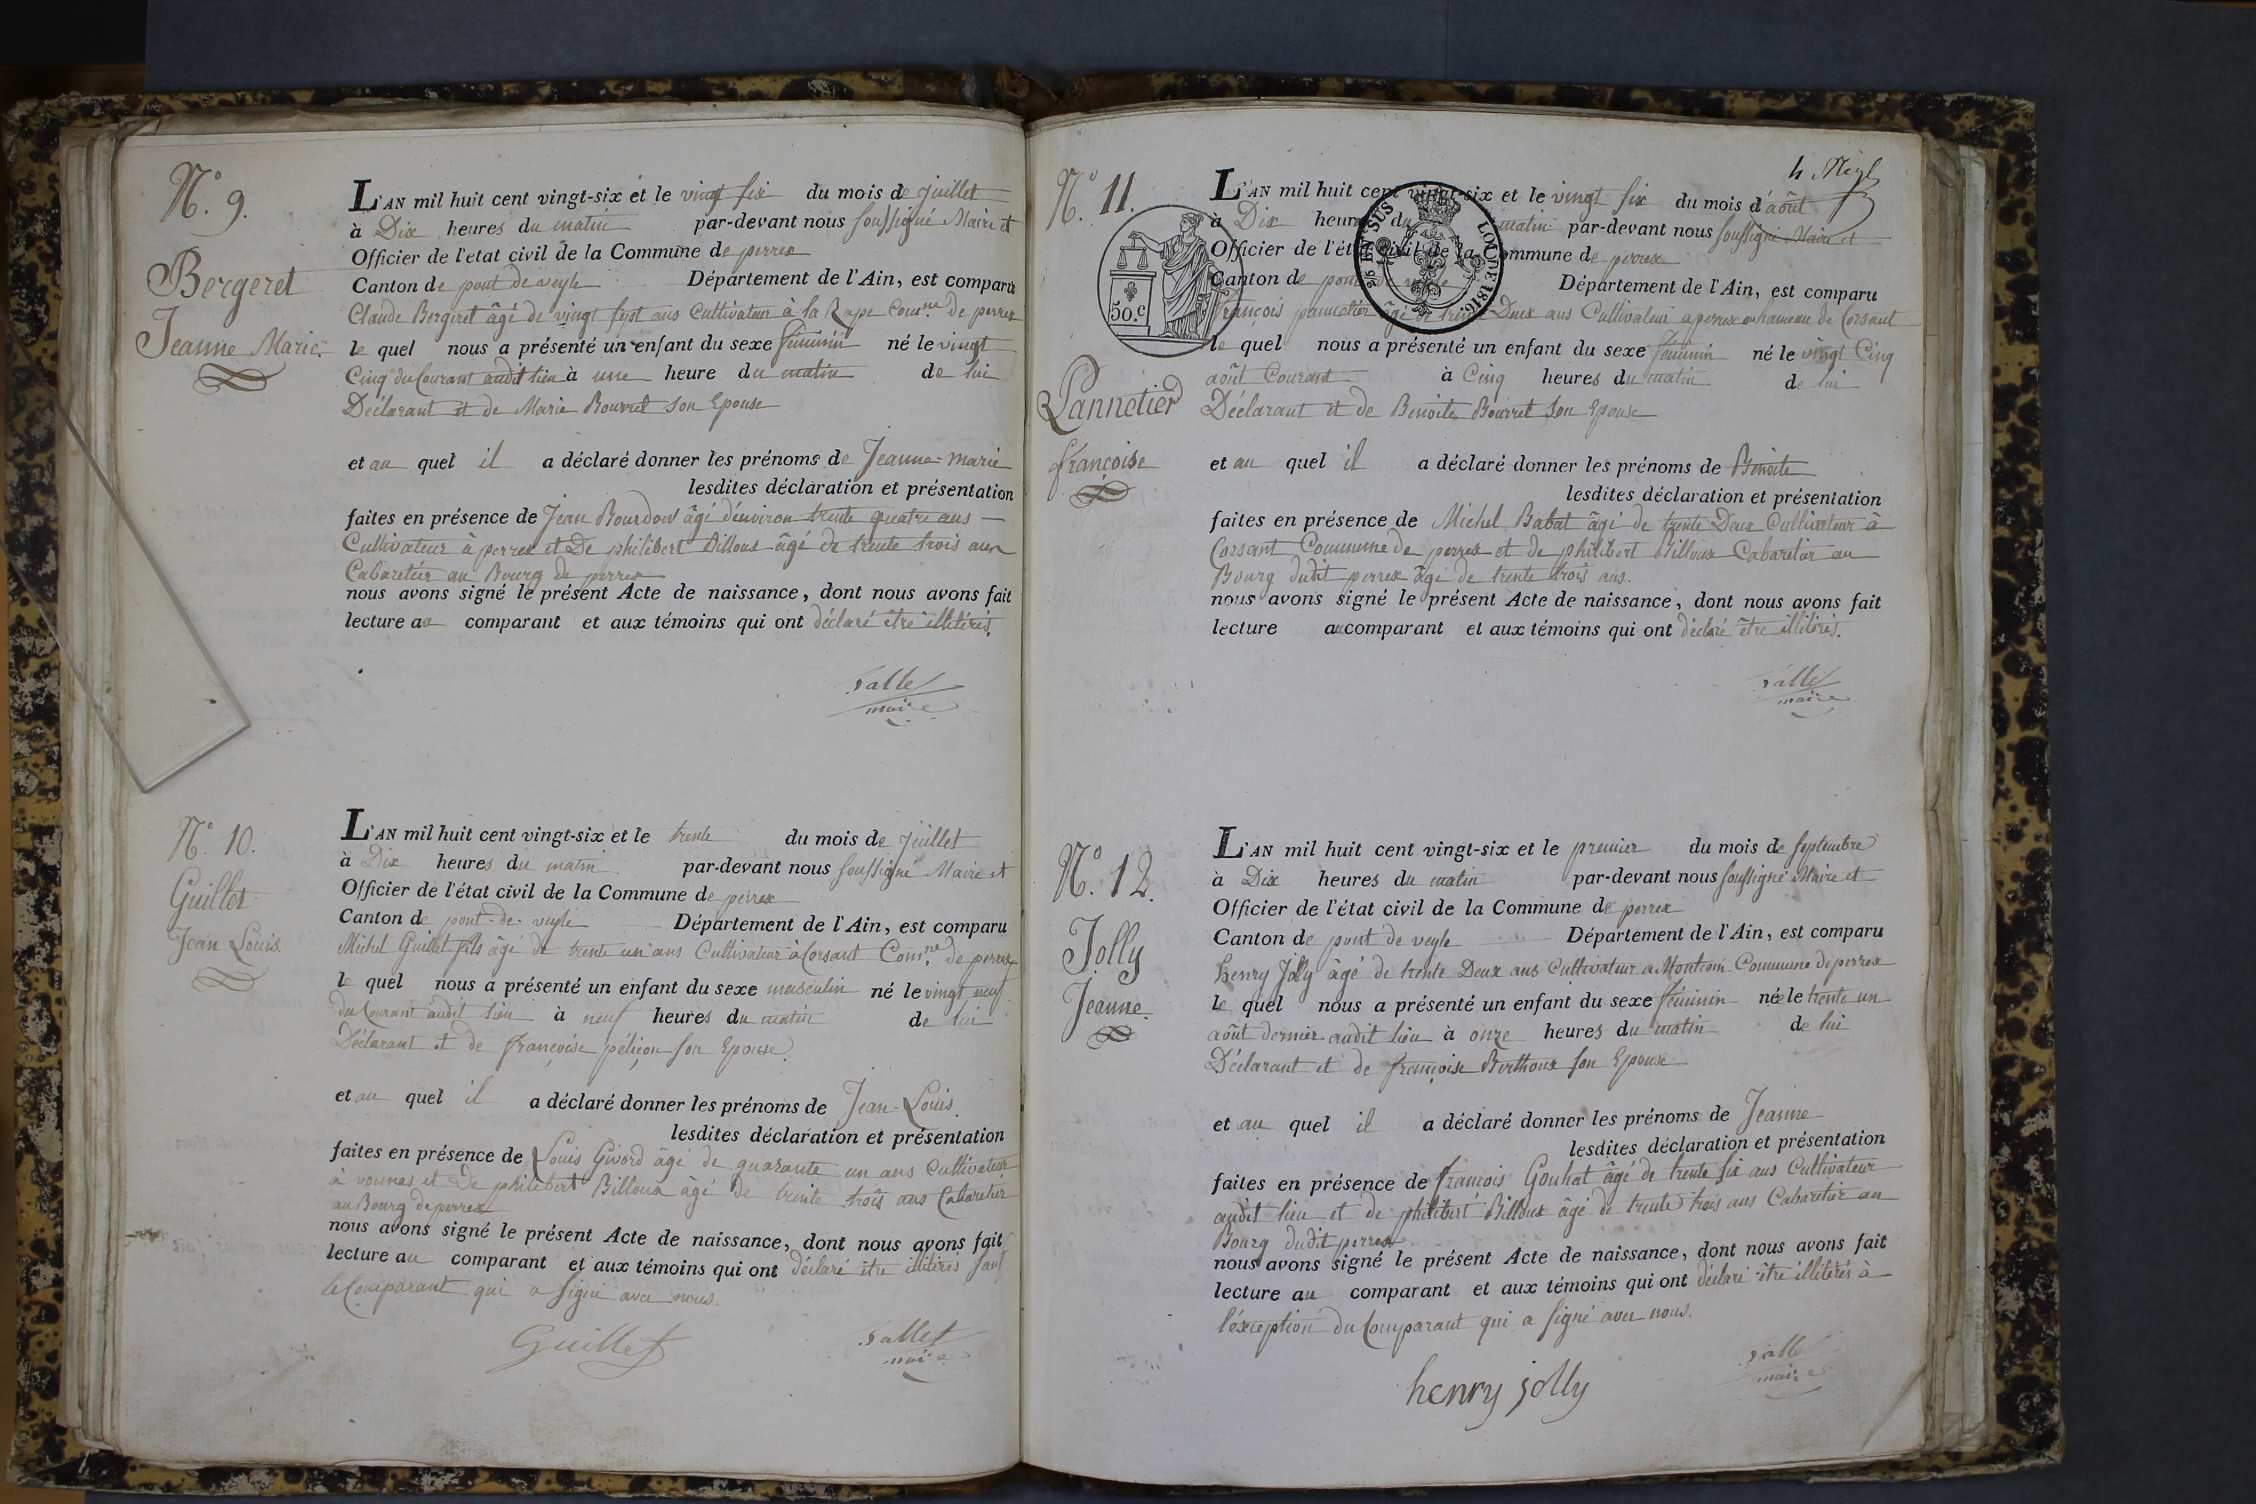 N.º 9.
Bergeret
Jeanne Marie.
L'AN mil huit cent vingt-six et le vingt six du mois de juillet
à Dix heures du matin par-devant nous soussigné Maire et
Officier de l'etat civil de la Commune de perrex
Canton de pont de veyle Département de l'Ain, est comparu
Claude Bergeret âgé de vingt sept ans Cultivateur à la Rape Com.ne de perrex
le quel nous a présenté un enfant du sexe féminin né le vingt
Cinq du Courant audit lieu à une heure du matin de lui
Déclarant et de Marie Bourret son Epouse
et au quel il a déclaré donner les prénoms de Jeanne-marie
lesdites déclaration et présentation
faites en présence de Jean Bourdon âgé d'environ trente quatre ans
Cultivateur à perrex et De philibert Billoux âgé de trente trois ans
Cabaretier au Bourg de perrex
nous avons signé le présent Acte de naissance, dont nous avons fait
lecture au comparant et aux témoins qui ont déclaré être illitérés.
maire
N.º 10.
Guillet
Jean Louis
L'AN mil huit cent vingt-six et le trente du mois de juillet
à Dix heures du matin par-devant nous soussigné Maire et
Officier de l'état civil de la Commune de perrex
Canton de pont-de-veyle Département de l'Ain, est comparu
Michel Guillet fils âgé de trente un ans Cultivateur à Corsant Com.ne de perrex
le quel nous a présenté un enfant du sexe masculin né le vingt neuf
du Courant audit lieu à neuf heures du matin de lui
Déclarant et de françoise péliçon son Epouse.
et au quel il a déclaré donner les prénoms de Jean-Louis.
lesdites déclaration et présentation
faites en présence de Louis Givord âgé de quarante un ans Cultivateur
à vonnas et De philibert Billoux âgé de trente trois ans Cabaretier
au Bourg de perrex
nous avons signé le présent Acte de naissance, dont nous avons fait
lecture au comparant et aux témoins qui ont déclaré être illitérés sauf
le Comparant qui a signé avec nous.
Guillet
maire
N.º 11.
50.c
25 EN SUS
LOI DE 1816
L'AN mil huit cent vingt-six et le vingt six du mois d'août
à Dix heures du matin par-devant nous soussigné Maire et
Officier de l'état civil de la Commune de perrex
Canton de pont de veyle Département de l'Ain, est comparu
François pannetier âgé de trente Deux ans Cultivateur a perrex au hameau de Corsant
le quel nous a présenté un enfant du sexe féminin né le vingt Cinq
août Courant à Cinq heures du matin de lui
Déclarant et de Benoite Bourret son Epouse
Pannetier
françoise
et au quel il a déclaré donner les prénoms de Benoite
lesdites déclaration et présentation
faites en présence de Michel Babat âgé de trente Deux Cultivateur à
Corsant Commune de perrex et de philibert Billoux Cabaretier au
Bourg dudit perrex âgé de trente trois ans.
nous avons signé le présent Acte de naissance, dont nous avons fait
lecture au comparant et aux témoins qui ont déclaré être illitérés.
maire
N.º 12.
Jolly
Jeanne.
L'AN mil huit cent vingt-six et le premier du mois de septembre
à Dix heures du matin par-devant nous soussigné Maire et
Officier de l'état civil de la Commune de perrex
Canton de pont de veyle Département de l'Ain, est comparu
henry Jolly âgé de trente Deux ans Cultivateur a Commune de perrex
le quel nous a présenté un enfant du sexe féminin née le trente un
août dernier audit lieu à onze heures du matin de lui
Déclarant et de françoise Berthoux son Epouse
et au quel il a déclaré donner les prénoms de Jeanne
lesdites déclaration et présentation
faites en présence de françois Gouhat âgé de trente six ans Cultivateur
audit lieu et de philibert Billoux âgé de trente trois ans Cabaretier au
Bourg dudit perrex
nous avons signé le présent Acte de naissance, dont nous avons fait
lecture au comparant et aux témoins qui ont déclaré être illitérés à
l'éxception du Comparant qui a signé avec nous.
henry jolly
maire